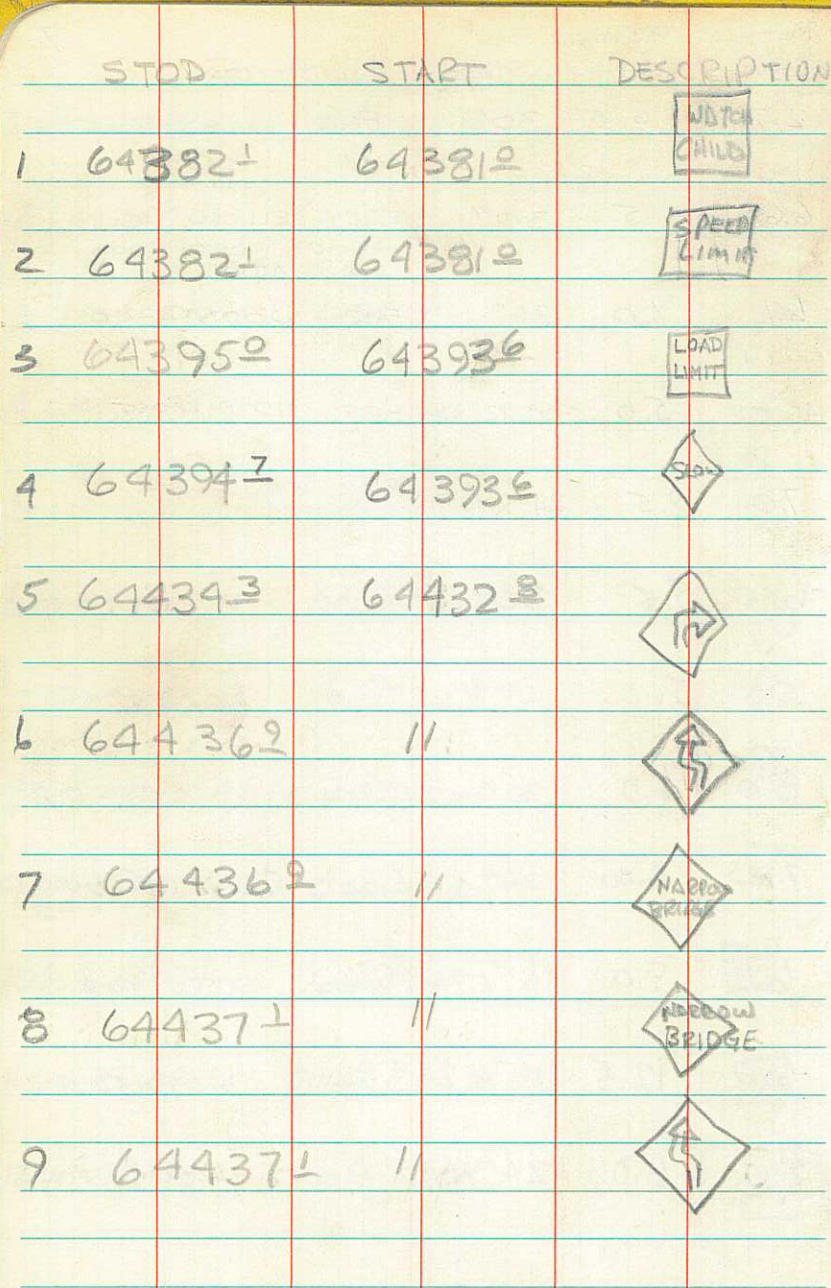 STOP START DESCRIPTION
WATCH
CHILD
1 64382 1 64381 0
SPEED
LIMIT
2 64382 1 64381 0
3 64395 0 64393 6
LOAD
LIMIT
4 64394 7 64393 6 SLOW
5 64434 3 64432 8
6 64436 9 "
7 64436 9 "
NARROW
BRIDGE
8 64437 1 "
NARROW
BRIDGE
9 64437 1 "